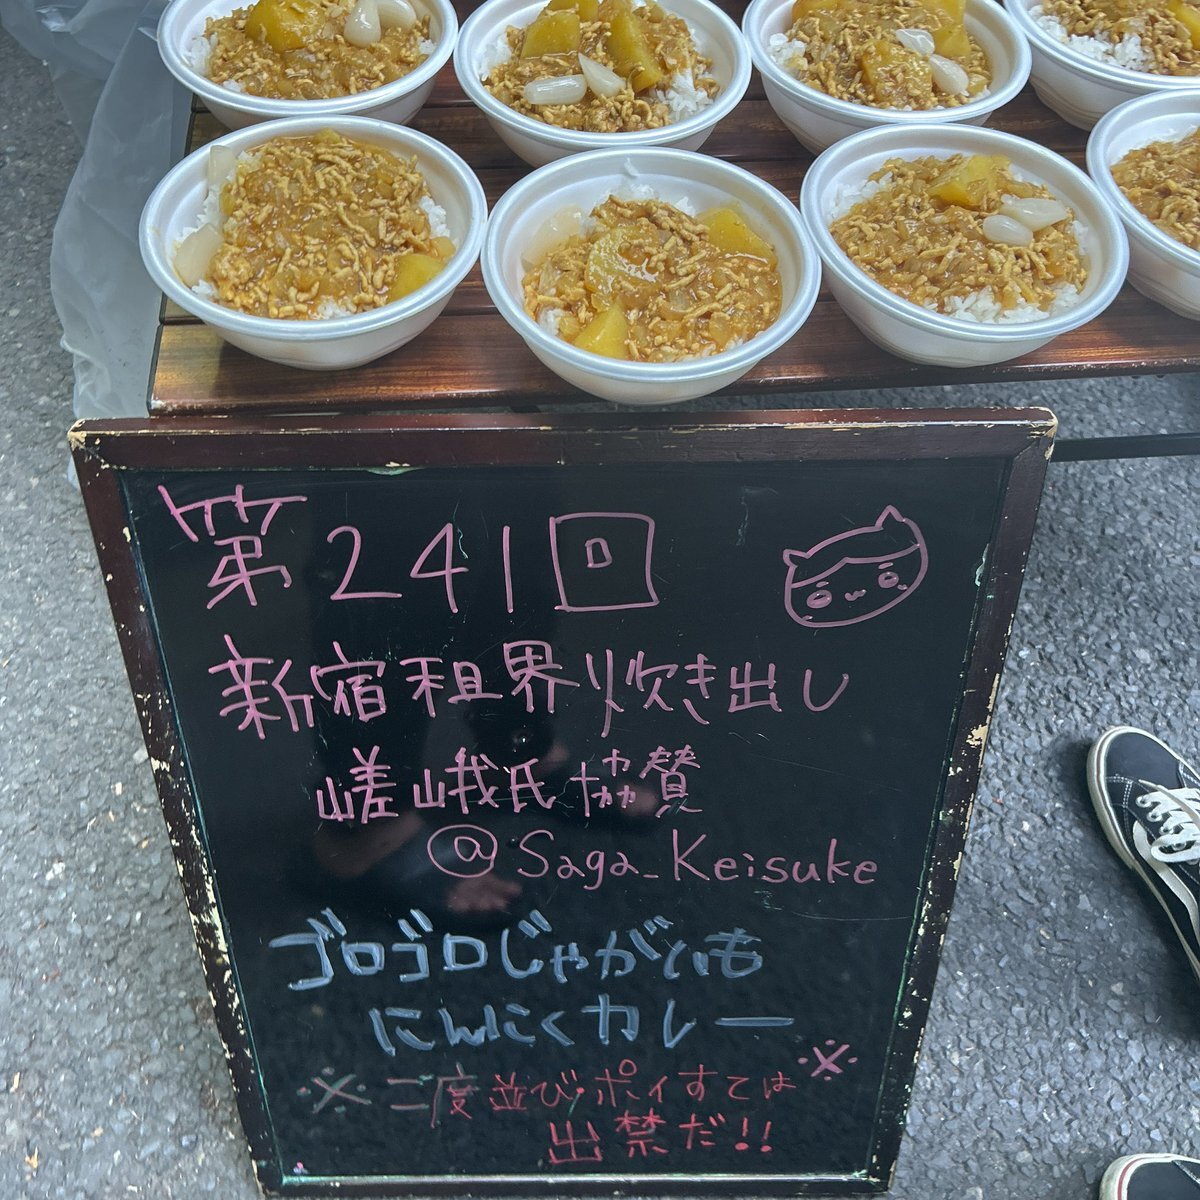 第241回
新宿租界炊き出し
嵯峨氏協賛
@Saga_Keisuke
ゴロゴロじゃがいも
にんにくカレー
※二度並び・ポイすては※
出禁だ!!